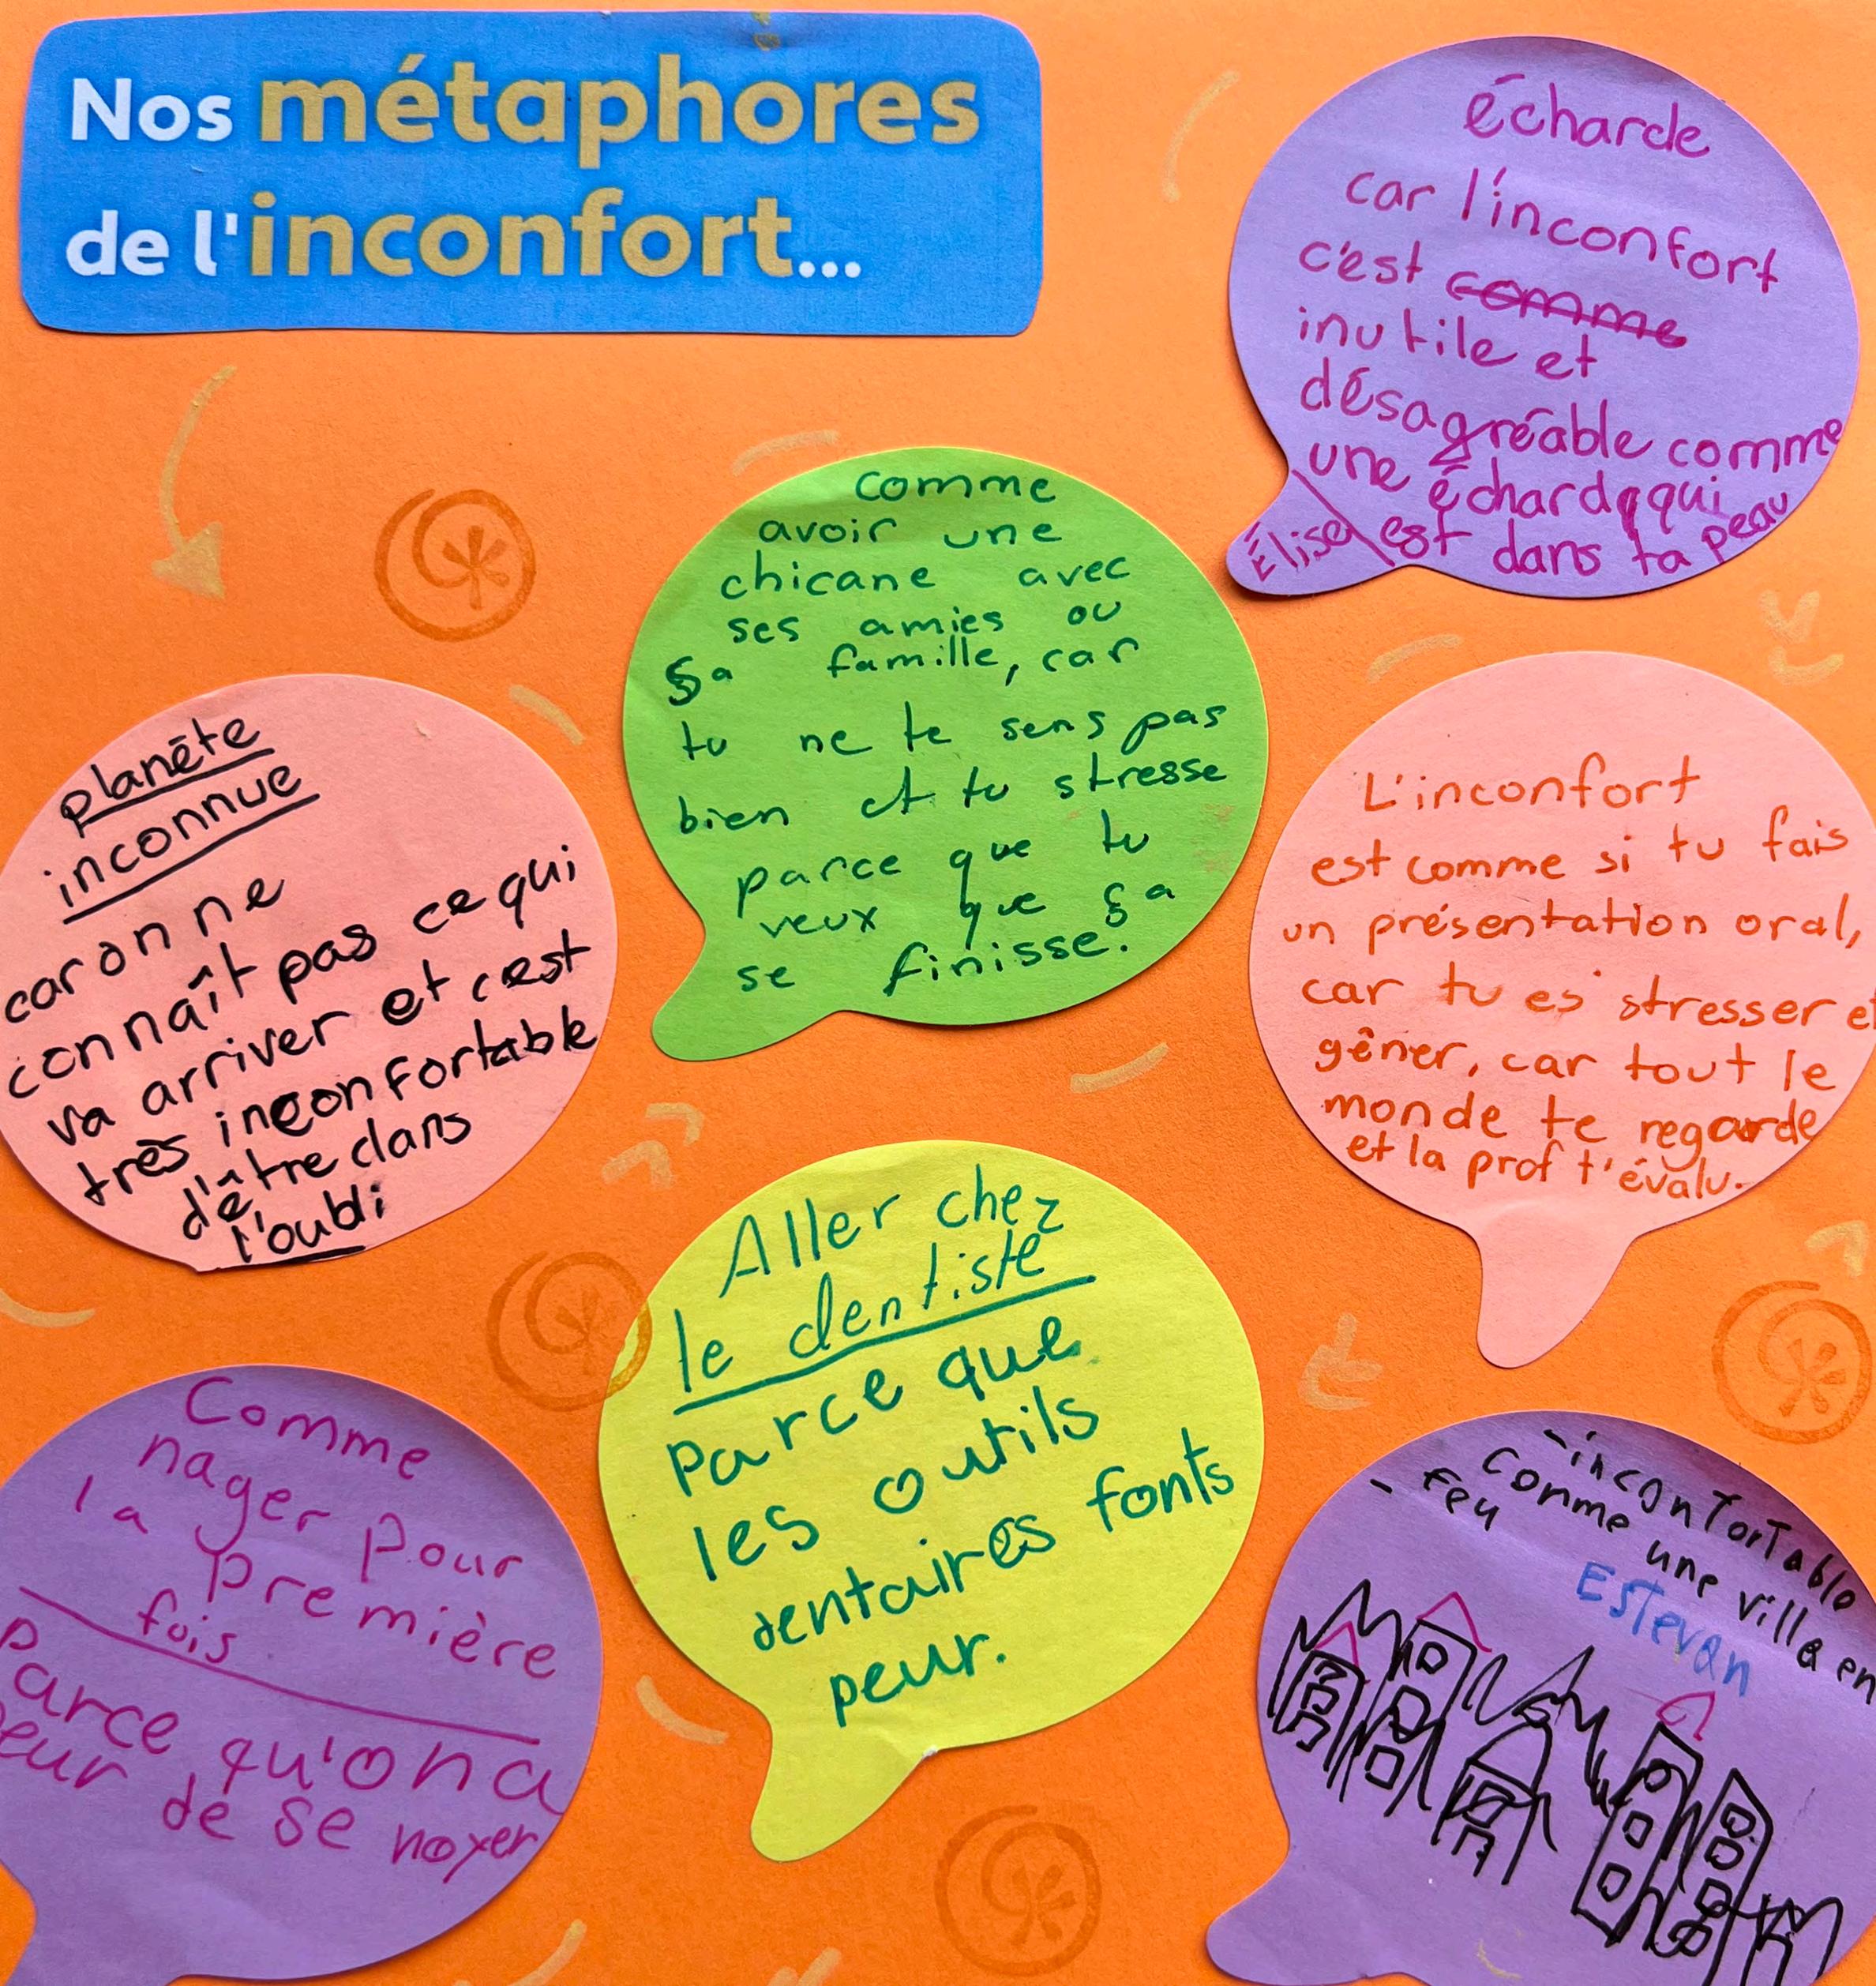 Nos métaphores
de l'inconfort...
écharde
car l'inconfort
c'est comme
inutile et
désagréable comme
une écharde qui
est dans ta peau
Élise
comme
avoir une
chicane avec
ses amies ou
sa famille, car
tu ne te sens pas
bien et tu stresse
parce que tu
veux que ça
se finisse.
planète
inconnue
car on ne
connaît pas ce qui
va arriver et c'est
très inconfortable
d'être dans
l'oubli
L'inconfort
est comme si tu fais
un présentation oral,
car tu es stresser et
gêner, car tout le
monde te regarde
et la prof t'évalu.
Aller chez
le dentiste
parce que
les outils
dentaires fonts
peur.
Comme
nager pour
la première
fois
Parce qu'on a
peur de se noyer
-inconfortable
comme une ville en
- feu
ESTevan